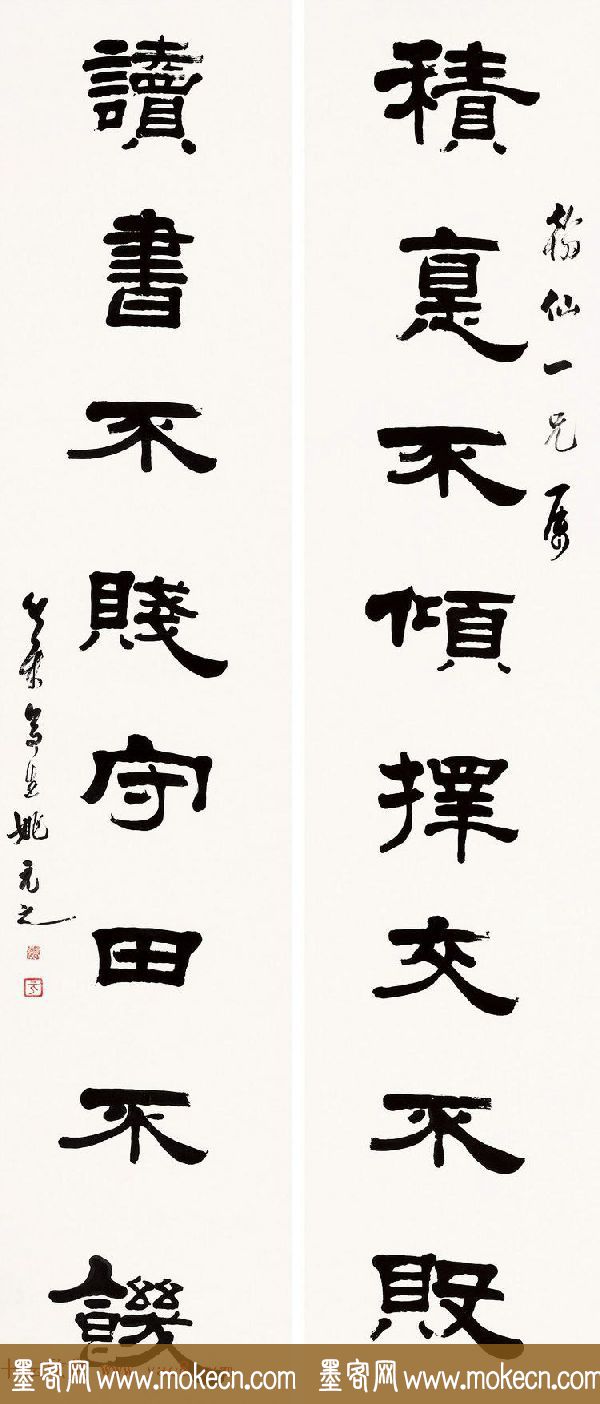 仙一兄屬
積悳不傾擇交不敗
讀書不賤守田不饑
竹葉亭生姚元之
墨客网 www.mokecn.com 墨客网 www.mokecn.com